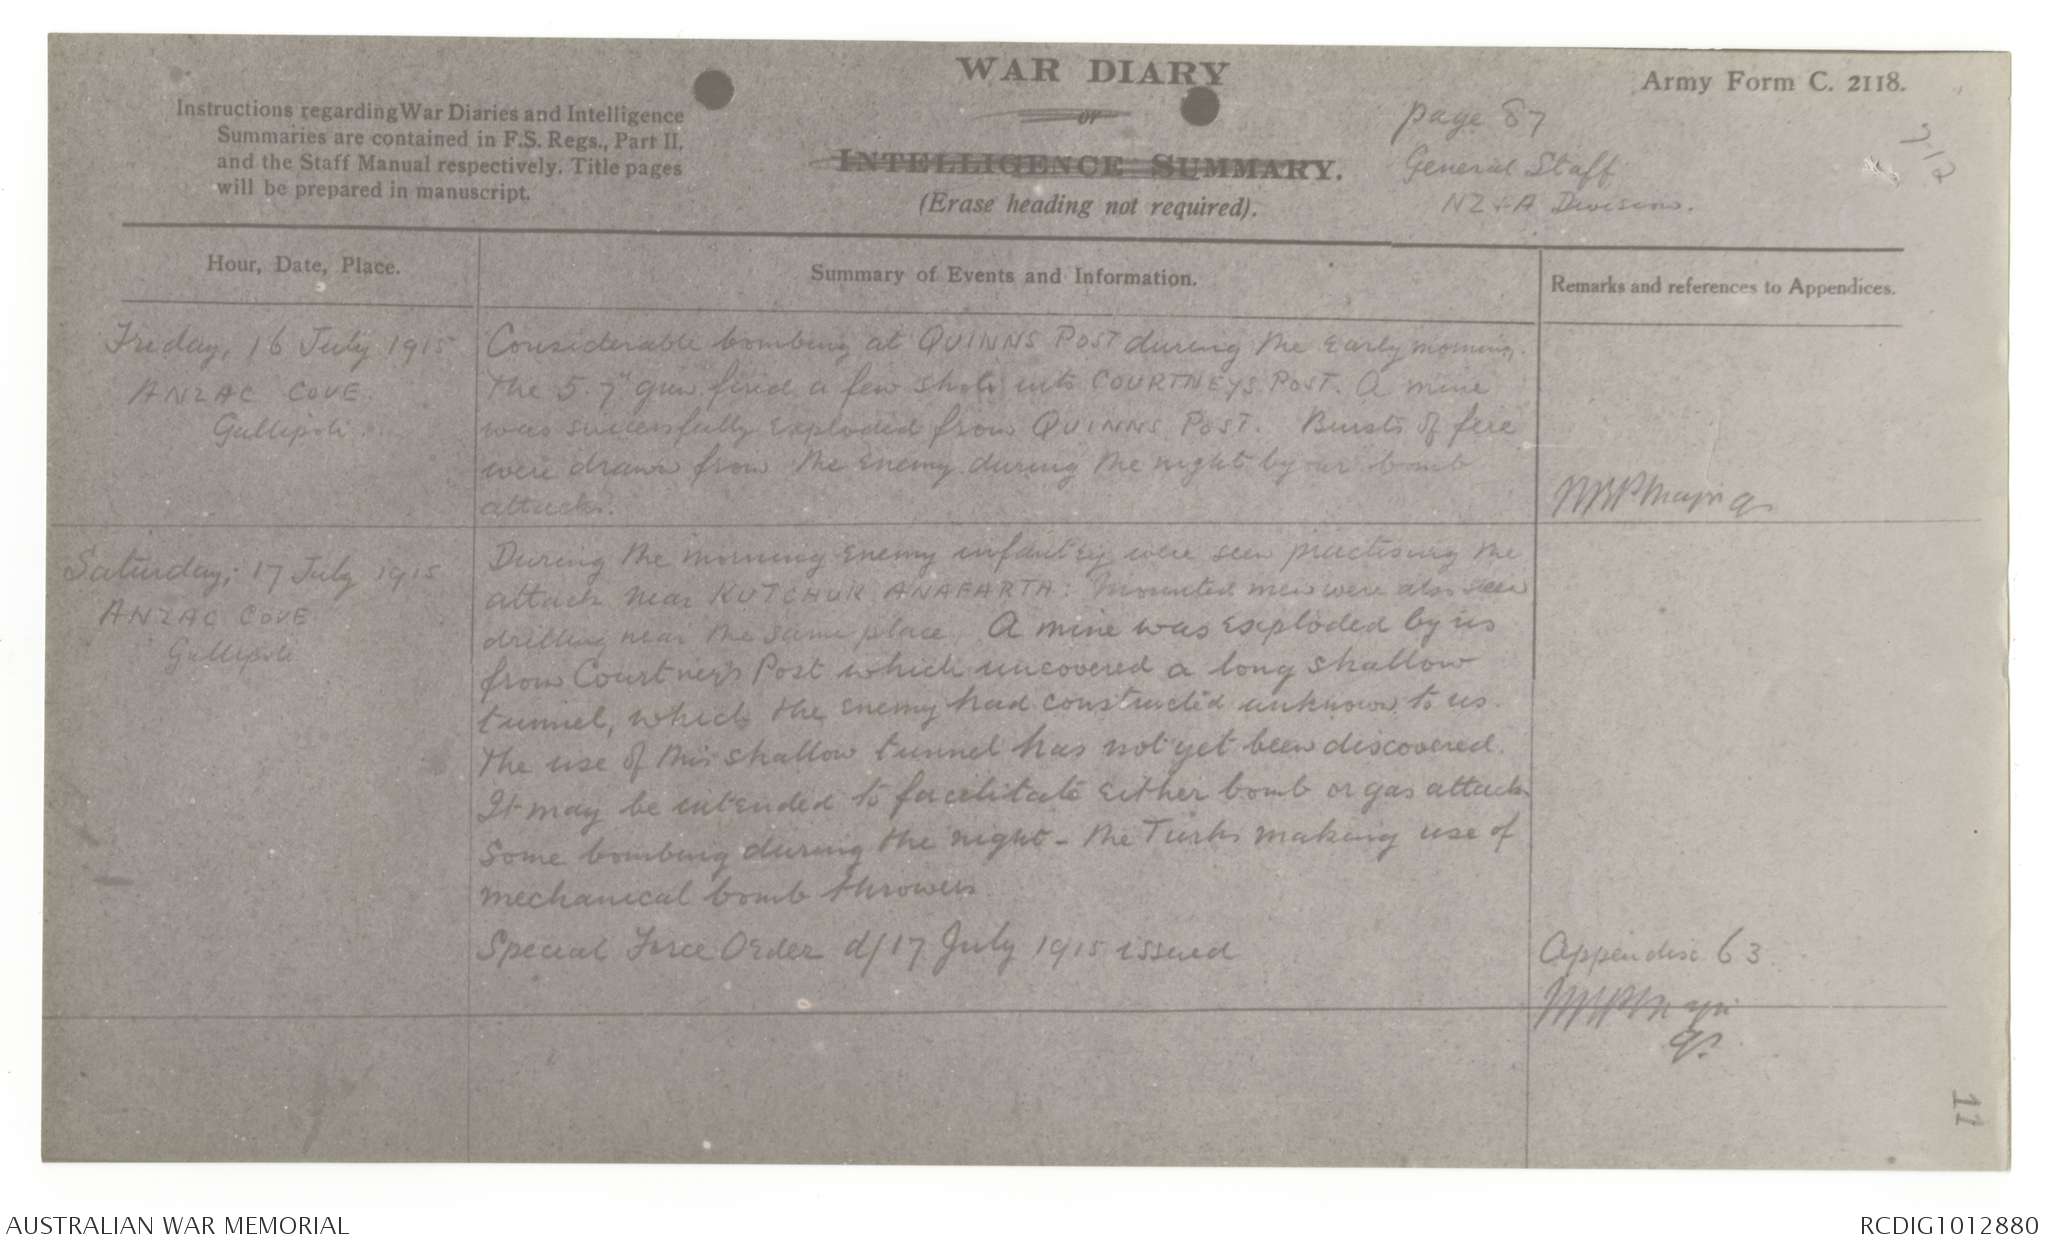 WAR DIARY
or
INTELLIGENCE SUMMARY.
(Erase heading not required).
Army Form C. 2118.
Instructions regarding War Diaries and Intelligence
Summaries are contained in F.S. Regs., Part II.
and the Staff Manual respectively. Title pages
will be prepared in manuscript.
page 87
General Staff
NZ & A Division.
Hour, Date, Place.
Summary of Events and Information.
Remarks and references to Appendices.
Friday, 16 July 1915
ANZAC COVE
Gallipoli.
Considerable bombing at QUINNS POST during the early morning.
The 5.7" gun fired a few shots into COURTNEYS POST. A mine
was successfully exploded from QUINNS POST. Bursts of fire
were drawn from the enemy during the night by our bomb
attacks.
Saturday, 17 July 1915
ANZAC COVE
Gallipoli
During the morning enemy infantry were seen practising the
attack near KUTCHUK ANAFARTA: Mounted men were also seen
drilling near the same place. A mine was exploded by us
from Courtney's Post which uncovered a long shallow
tunnel, which the enemy had constructed unknown to us.
The use of this shallow tunnel has not yet been discovered.
It may be intended to facilitate either bomb or gas attack
Some bombing during the night - the Turks making use of
mechanical bomb throwers.
Special Force Order d/17 July 1915 issued
Appendix 63.
11
AUSTRALIAN WAR MEMORIAL
RCDIG1012880